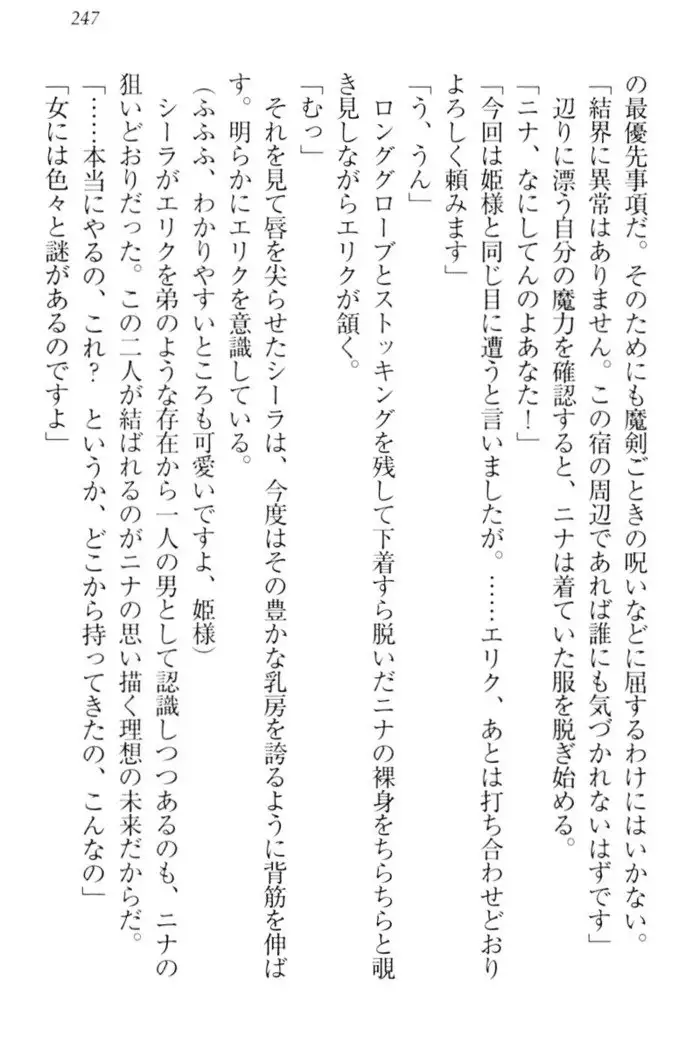 247
の最優先事項だ。そのためにも魔剣ごときの呪いなどに屈するわけにはいかない。
「結界に異常はありません。この宿の周辺であれば誰にも気づかれないはずです」
　辺りに漂う自分の魔力を確認すると、ニナは着ていた服を脱ぎ始める。
「ニナ、なにしてんのよあなた！」
「今回は姫様と同じ目に遭うと言いましたが。……エリク、あとは打ち合わせどおり
よろしく頼みます」
「う、うん」
　ロンググローブとストッキングを残して下着すら脱いだニナの裸身をちらちらと覗
き見しながらエリクが頷く。
「むっ」
　それを見て唇を尖らせたシーラは、今度はその豊かな乳房を誇るように背筋を伸ば
す。明らかにエリクを意識している。
（ふふふ、わかりやすいところも可愛いですよ、姫様）
　シーラがエリクを弟のような存在から一人の男として認識しつつあるのも、ニナの
狙いどおりだった。この二人が結ばれるのがニナの思い描く理想の未来だからだ。
「……本当にやるの、これ？　というか、どこから持ってきたの、こんなの」
「女には色々と謎があるのですよ」